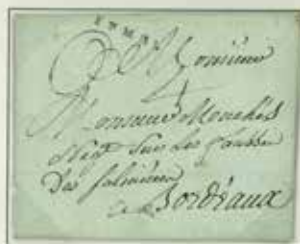 Monsieur
Monsieur
Neg^t Sur Les fossés
Des salinières
a Bordeaux